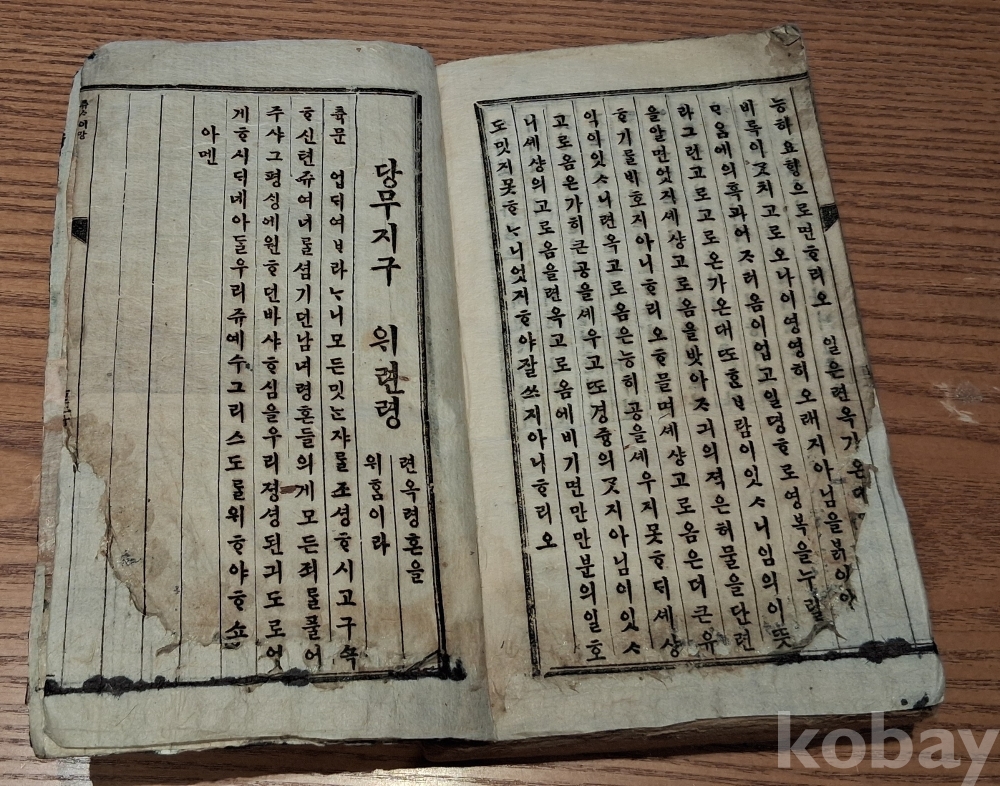 능하요힝으로면ᄒᆞ리오 일은련옥가온
비록이ᄀᆞᆺ치고로오나이영영히오래지아님을붉이아
ᄆᆞ음에의혹과어ᄌᆞ러옴이업고일뎡ᄒᆞ로영복을누릴
라그런고로고로온가온대ᄯᅩᄒᆞᆫᄇᆞ람이잇ᄉᆞ니임의이ᄯᅳᆺ
을알면엇지셰샹고로옴을밧아ᄌᆞ긔의적은허물을단련
ᄒᆞ기를ᄇᆡ호지아니ᄒᆞ리오ᄒᆞ믈며셰샹고로옴은더큰유
익이잇ᄉᆞ니련옥고로옴은능히공을셰우지못ᄒᆞᄃᆡ셰샹
고로옴은가히큰공을셰우고ᄯᅩ경즁의ᄀᆞᆺ지아님이잇ᄉᆞ
니셰샹의고로옴을련옥고로옴에비기면만만분의일호
도밋지못ᄒᆞᄂᆞ니엇지ᄒᆞ야잘쓰지아니ᄒᆞ리오
당무지구 위련령
련옥령혼을
위홈이라
츅문 업ᄃᆡ여ᄇᆞ라ᄂᆞ니모든밋ᄂᆞᆫ쟈를조셩ᄒᆞ시고구쇽
ᄒᆞ신텬쥬여녀를셤기던남녀령혼들의게모든죄를풀어
주샤그평셩에원ᄒᆞ던바샤ᄒᆞ심을우리졍셩된긔도로엇
게ᄒᆞ시ᄃᆡ네아ᄃᆞᆯ우리쥬예수그리스도를위ᄒᆞ야ᄒᆞ쇼
아멘
kobay